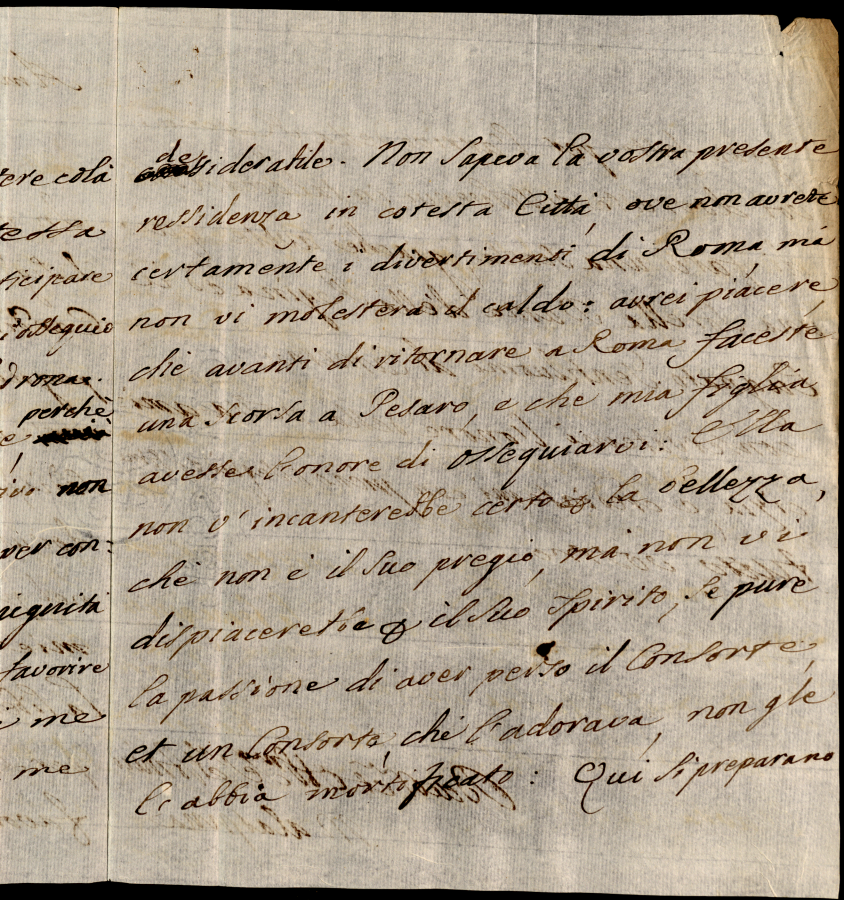 tere colà
tessa
ticipare
ossequio
drona.
perchè
e
ivo non
ver con=
nignità
favorire
i me
me
desiderabile. Non sapeva la vostra presente
ressidenza in cotesta Città, ove non avrete
certamente i divertimenti di Roma, mà
non vi molesterà il caldo: avrei piacere,
chè avanti di ritornare a Roma faceste
una scorsa a Pesaro, e che mia figlia
avesse l'onore di ossequiarvi: Ella
non v'incanterebbe certo la bellezza,
chè non è il suo pregio, mà non vi
dispiacerebbe il suo spirito, se pure
la passione di aver perso il Consorte,
et un Consorte, chè l'adorava, non gle
l'abbia mortificato: Qui si preparano